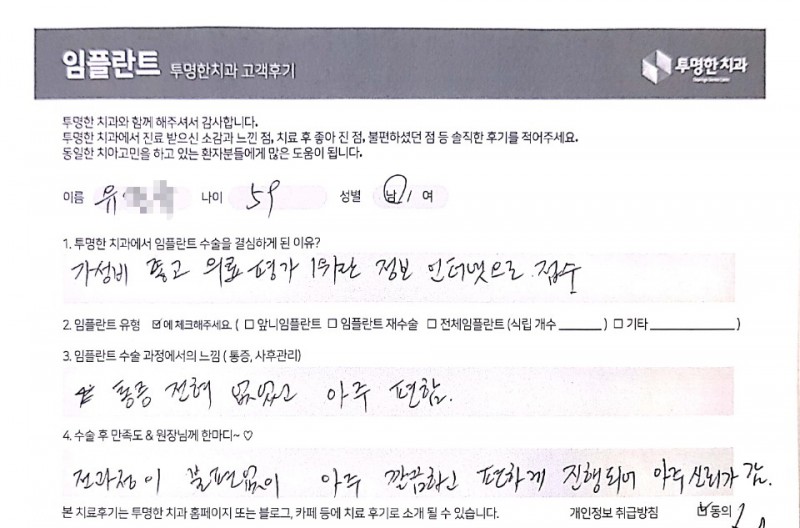 임플란트 투명한치과 고객후기
투명한치과
투명한 치과와 함께 해주셔서 감사합니다.
투명한 치과에서 진료 받으신 소감과 느낀 점, 치료 후 좋아 진 점, 불편하셨던 점 등 솔직한 후기를 적어주세요.
동일한 치아고민을 하고 있는 환자분들에게 많은 도움이 됩니다.
이름 유 나이 59 성별 남 / 여
1. 투명한 치과에서 임플란트 수술을 결심하게 된 이유?
가성비 좋고 의료 평가 1위란 정보 인터넷으로 접수
2. 임플란트 유형 ☑에 체크해주세요. ( ☐ 앞니임플란트 ☐ 임플란트 재수술 ☐ 전체임플란트 (식립 개수 ______ ) ☐ 기타 ____________ )
3. 임플란트 수술 과정에서의 느낌 ( 통증, 사후관리)
통증 전혀 없었고 아주 편함.
4. 수술 후 만족도 & 원장님께 한마디~ ♡
전과정이 불편없이 아주 깔끔하고 편하게 진행되어 아주 신뢰가 감.
본 치료후기는 투명한 치과 홈페이지 또는 블로그, 카페 등에 치료 후기로 소개 될 수 있습니다. 개인정보 취급방침 ☑동의